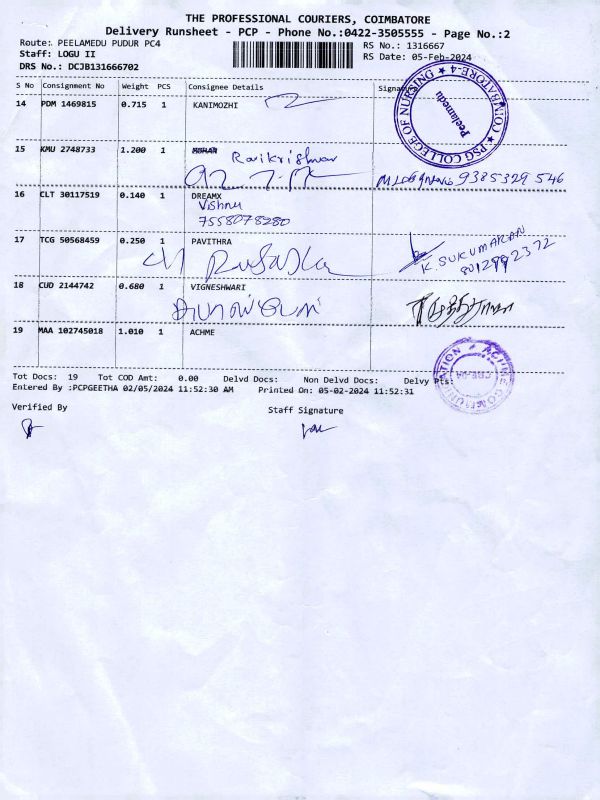 THE PROFESSIONAL COURIERS, COIMBATORE
Delivery Runsheet - PCP - Phone No.:0422-3505555 - Page No.:2
Route: PEELAMEDU PUDUR PC4
RS No.: 1316667
Staff: LOGU II
RS Date: 05-Feb-2024
DRS No.: DCJB131666702
S No Consignment No Weight PCS Consignee Details Signature
14 PDM 1469815 0.715 1 KANIMOZHI
PSG COLLEGE OF NURSING ★ COIMBATORE-4 ★
Peelamedu
15 KMU 2748733 1.200 1 Ravikrishnan
9385329546
16 CLT 30117519 0.140 1 DREAMX
Vishnu
7558078280
17 TCG 50568459 0.250 1 PAVITHRA
K. SUKUMARAN
8012992372
18 CUD 2144742 0.680 1 VIGNESHWARI
19 MAA 102745018 1.010 1 ACHME
★ ACHME COMMUNICATION
Tot Docs: 19 Tot COD Amt: 0.00 Delvd Docs: Non Delvd Docs: Delvy Pts:
Entered By :PCPGEETHA 02/05/2024 11:52:30 AM Printed On: 05-02-2024 11:52:31
Verified By Staff Signature